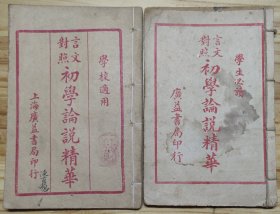 學校適用
言文
對照
初學論說精華
上海廣益書局印行
學生必讀
言文
對照
初學論說精華
廣益書局印行